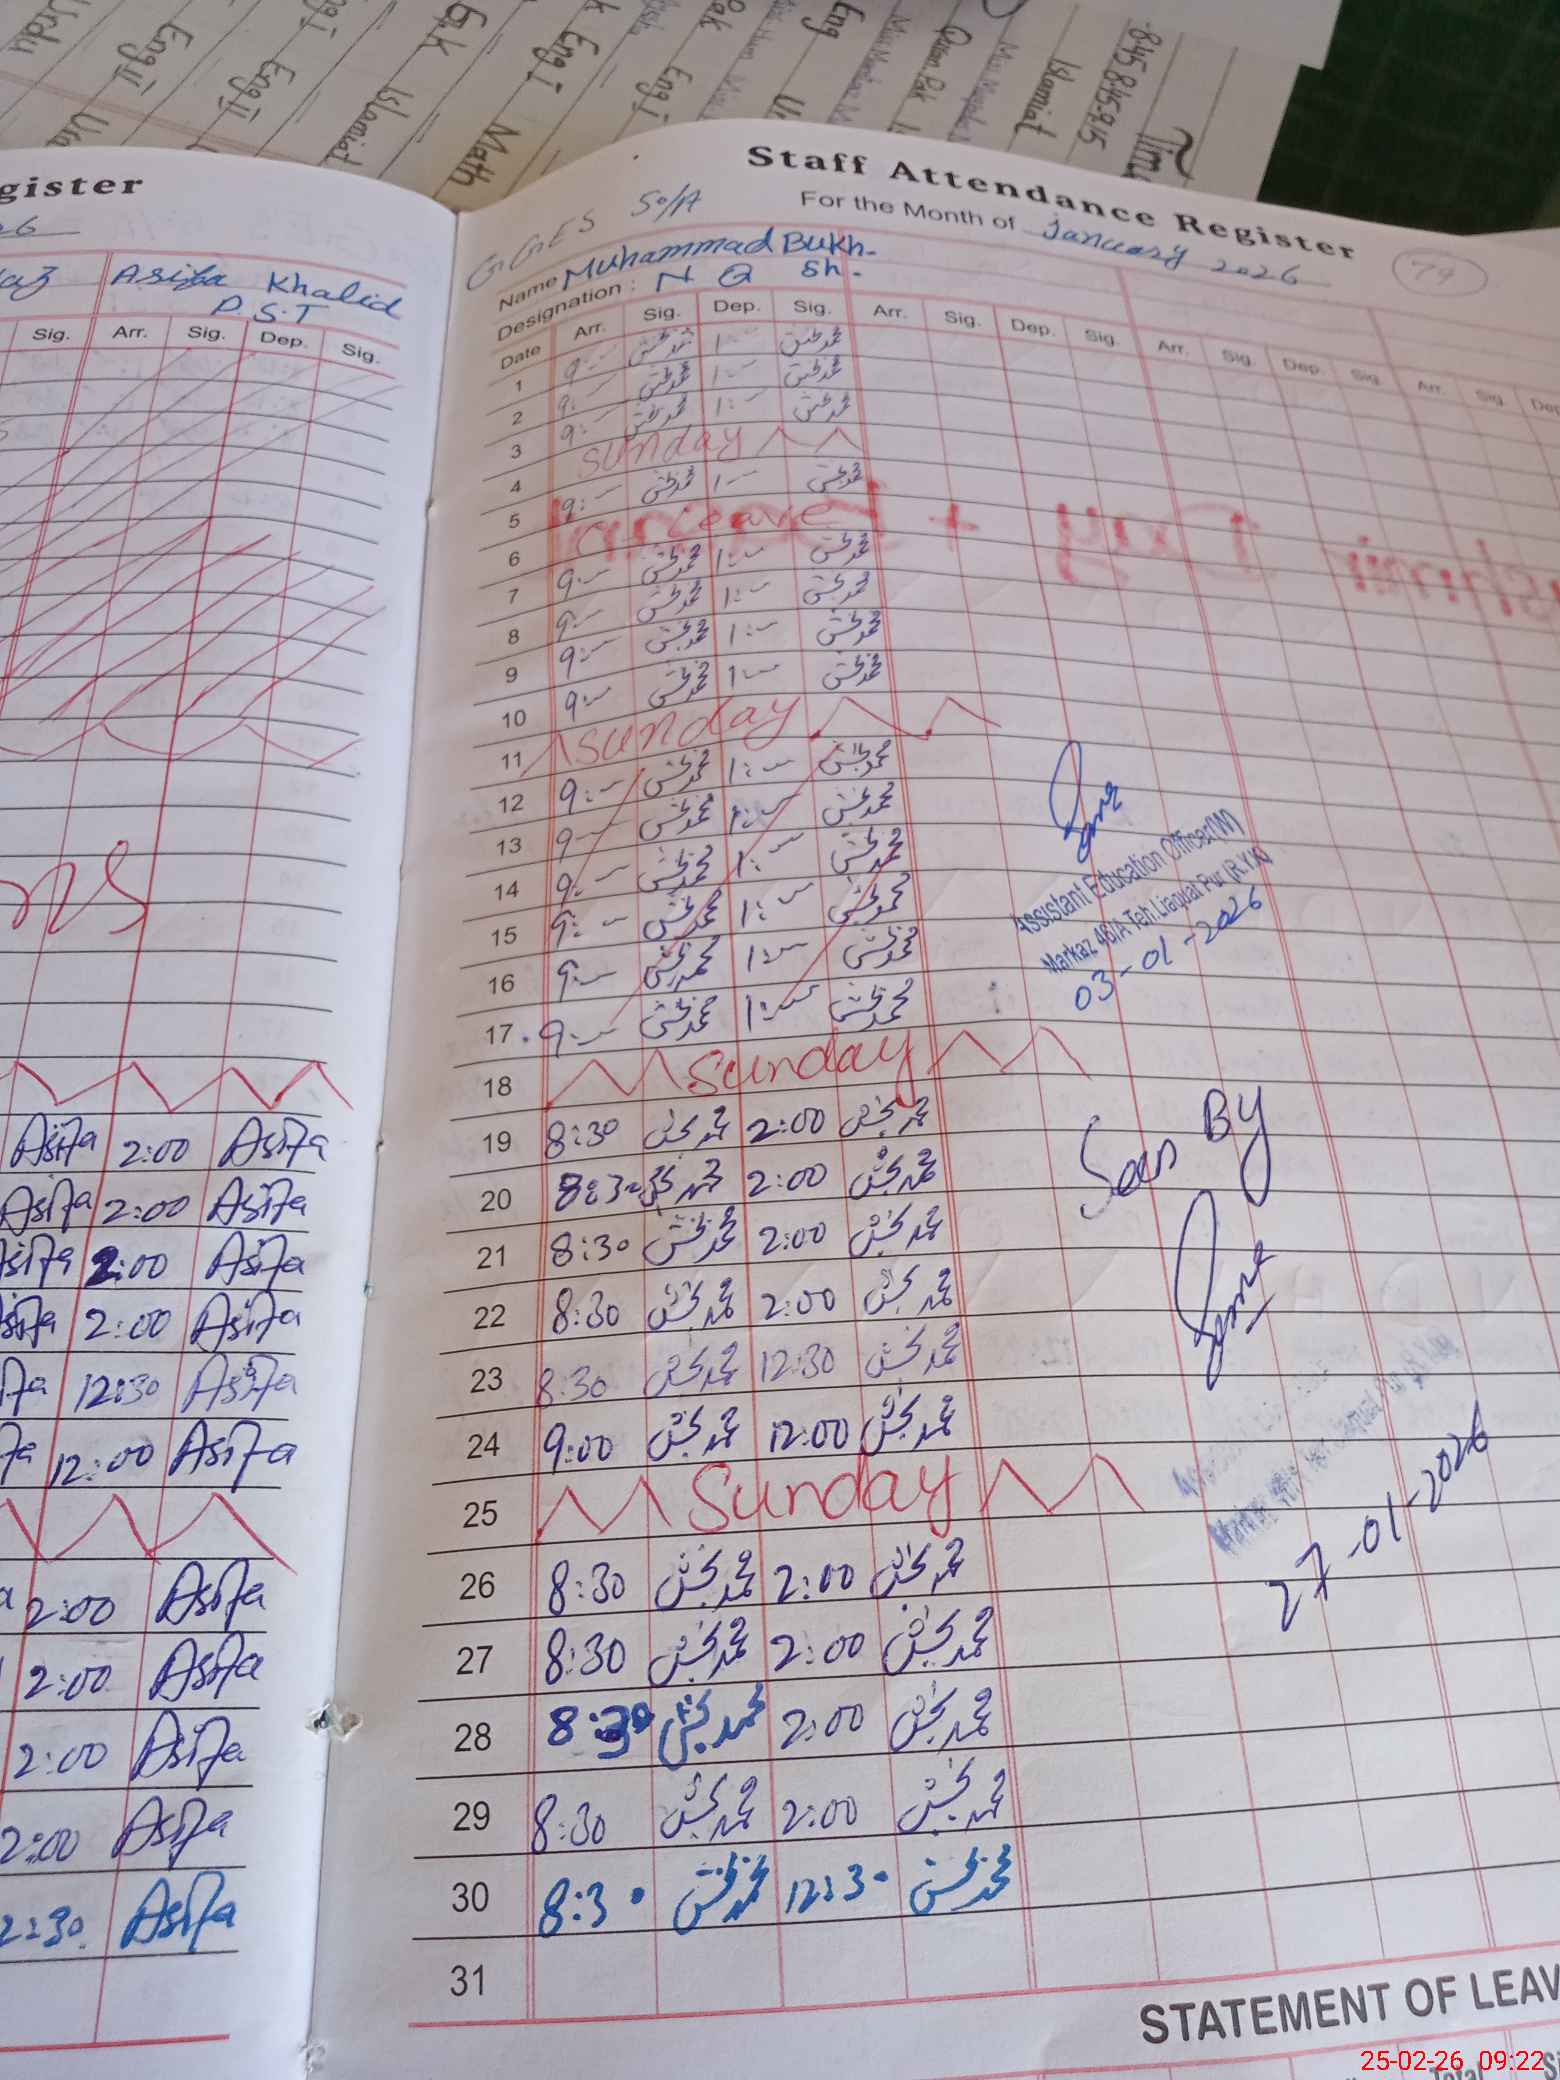 Urdu Eng II Urd Eng II Eng I Islamiat Eng K Math Eng I Eng Eng I Pak Eng Quran Pak Islamiat 8:45 8:45 9:15 Time
gister
26
az Asifa Khalid
P.S.T
Sig. Arr. Sig. Dep. Sig.
Asifa 2:00 Asifa
Asifa 2:00 Asifa
Asifa 2:00 Asifa
sifa 2:00 Asifa
ifa 12:30 Asifa
fa 12:00 Asifa
a 2:00 Asifa
2:00 Asifa
2:00 Asifa
2:00 Asifa
2:30 Asifa
Staff Attendance Register
GGES 50/A For the Month of January 2026 79
Name Muhammad Bukh-
Designation : N Q sh-
Date Arr. Sig. Dep. Sig. Arr. Sig. Dep. Sig. Arr. Sig. Dep. Sig. Arr. Sig. Dep
1 9:- محمد بخش 1:- محمد بخش
2 9:- محمد بخش 1:- محمد بخش
3 9:- محمد بخش 1:- محمد بخش
4 Sunday
5 9:- محمد بخش 1:- محمد بخش
6 Leave
7 9:- محمد بخش 1:- محمد بخش
8 9:- محمد بخش 1:- محمد بخش
9 9:- محمد بخش 1:- محمد بخش
10 9:- محمد بخش 1:- محمد بخش
11 Sunday
12 9:- محمد بخش 1:- محمد بخش
13 9:- محمد بخش 1:- محمد بخش
14 9:- محمد بخش 1:- محمد بخش
15 9:- محمد بخش 1:- محمد بخش
16 9:- محمد بخش 1:- محمد بخش
17 9:- محمد بخش 1:- محمد بخش
18 Sunday
19 8:30 محمد بخش 2:00 محمد بخش
20 8:30 محمد بخش 2:00 محمد بخش
21 8:30 محمد بخش 2:00 محمد بخش
22 8:30 محمد بخش 2:00 محمد بخش
23 8:30 محمد بخش 12:30 محمد بخش
24 9:00 محمد بخش 12:00 محمد بخش
25 Sunday
26 8:30 محمد بخش 2:00 محمد بخش
27 8:30 محمد بخش 2:00 محمد بخش
28 8:30 محمد بخش 2:00 محمد بخش
29 8:30 محمد بخش 2:00 محمد بخش
30 8:30 محمد بخش 12:30 محمد بخش
31
Assistant Education Officer(W)
Markaz 46/A Teh. Liaquat Pur (R.Y.K)
03-01-2026
Seen By
27-01-2026
STATEMENT OF LEAV
Total
25-02-26 09:22